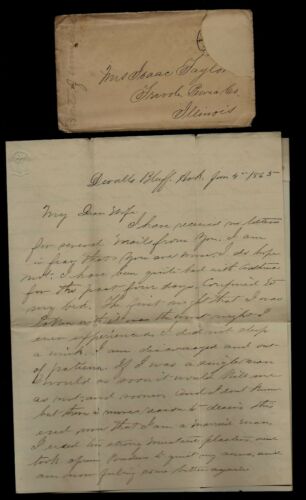 Mrs Isaac Taylor
Trivoli Peoria Co.
Illinois
Devalls Bluff Ark Jan 4th 1865
My Dear Wife
I have recieved no letters
for several mails from you. I am
in fear that you are unwell I do hope
not; I have been quite bad with
for the past four days. Confined to
my bed. The first night that I was
taken with it was the worst night I
ever experienced I did not sleep
a wink. I am discouraged and out
of patience. If I was a single man
I would as soon it would kill me
as not, and sooner. And I dont know
but there is more reason to desire this
end now that I am a married man.
I used two strong mustard plasters and
took opium to quiet my nerves, and
am now feeling some better again.